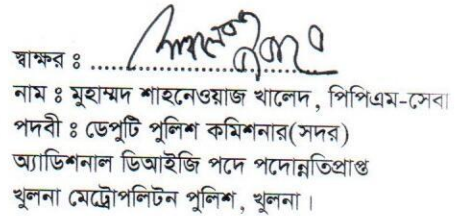 স্বাক্ষর ঃ ..............................
নাম ঃ মুহাম্মদ শাহনেওয়াজ খালেদ, পিপিএম-সেবা
পদবী ঃ ডেপুটি পুলিশ কমিশনার(সদর)
অ্যাডিশনাল ডিআইজি পদে পদোন্নতিপ্রাপ্ত
খুলনা মেট্রোপলিটন পুলিশ, খুলনা।